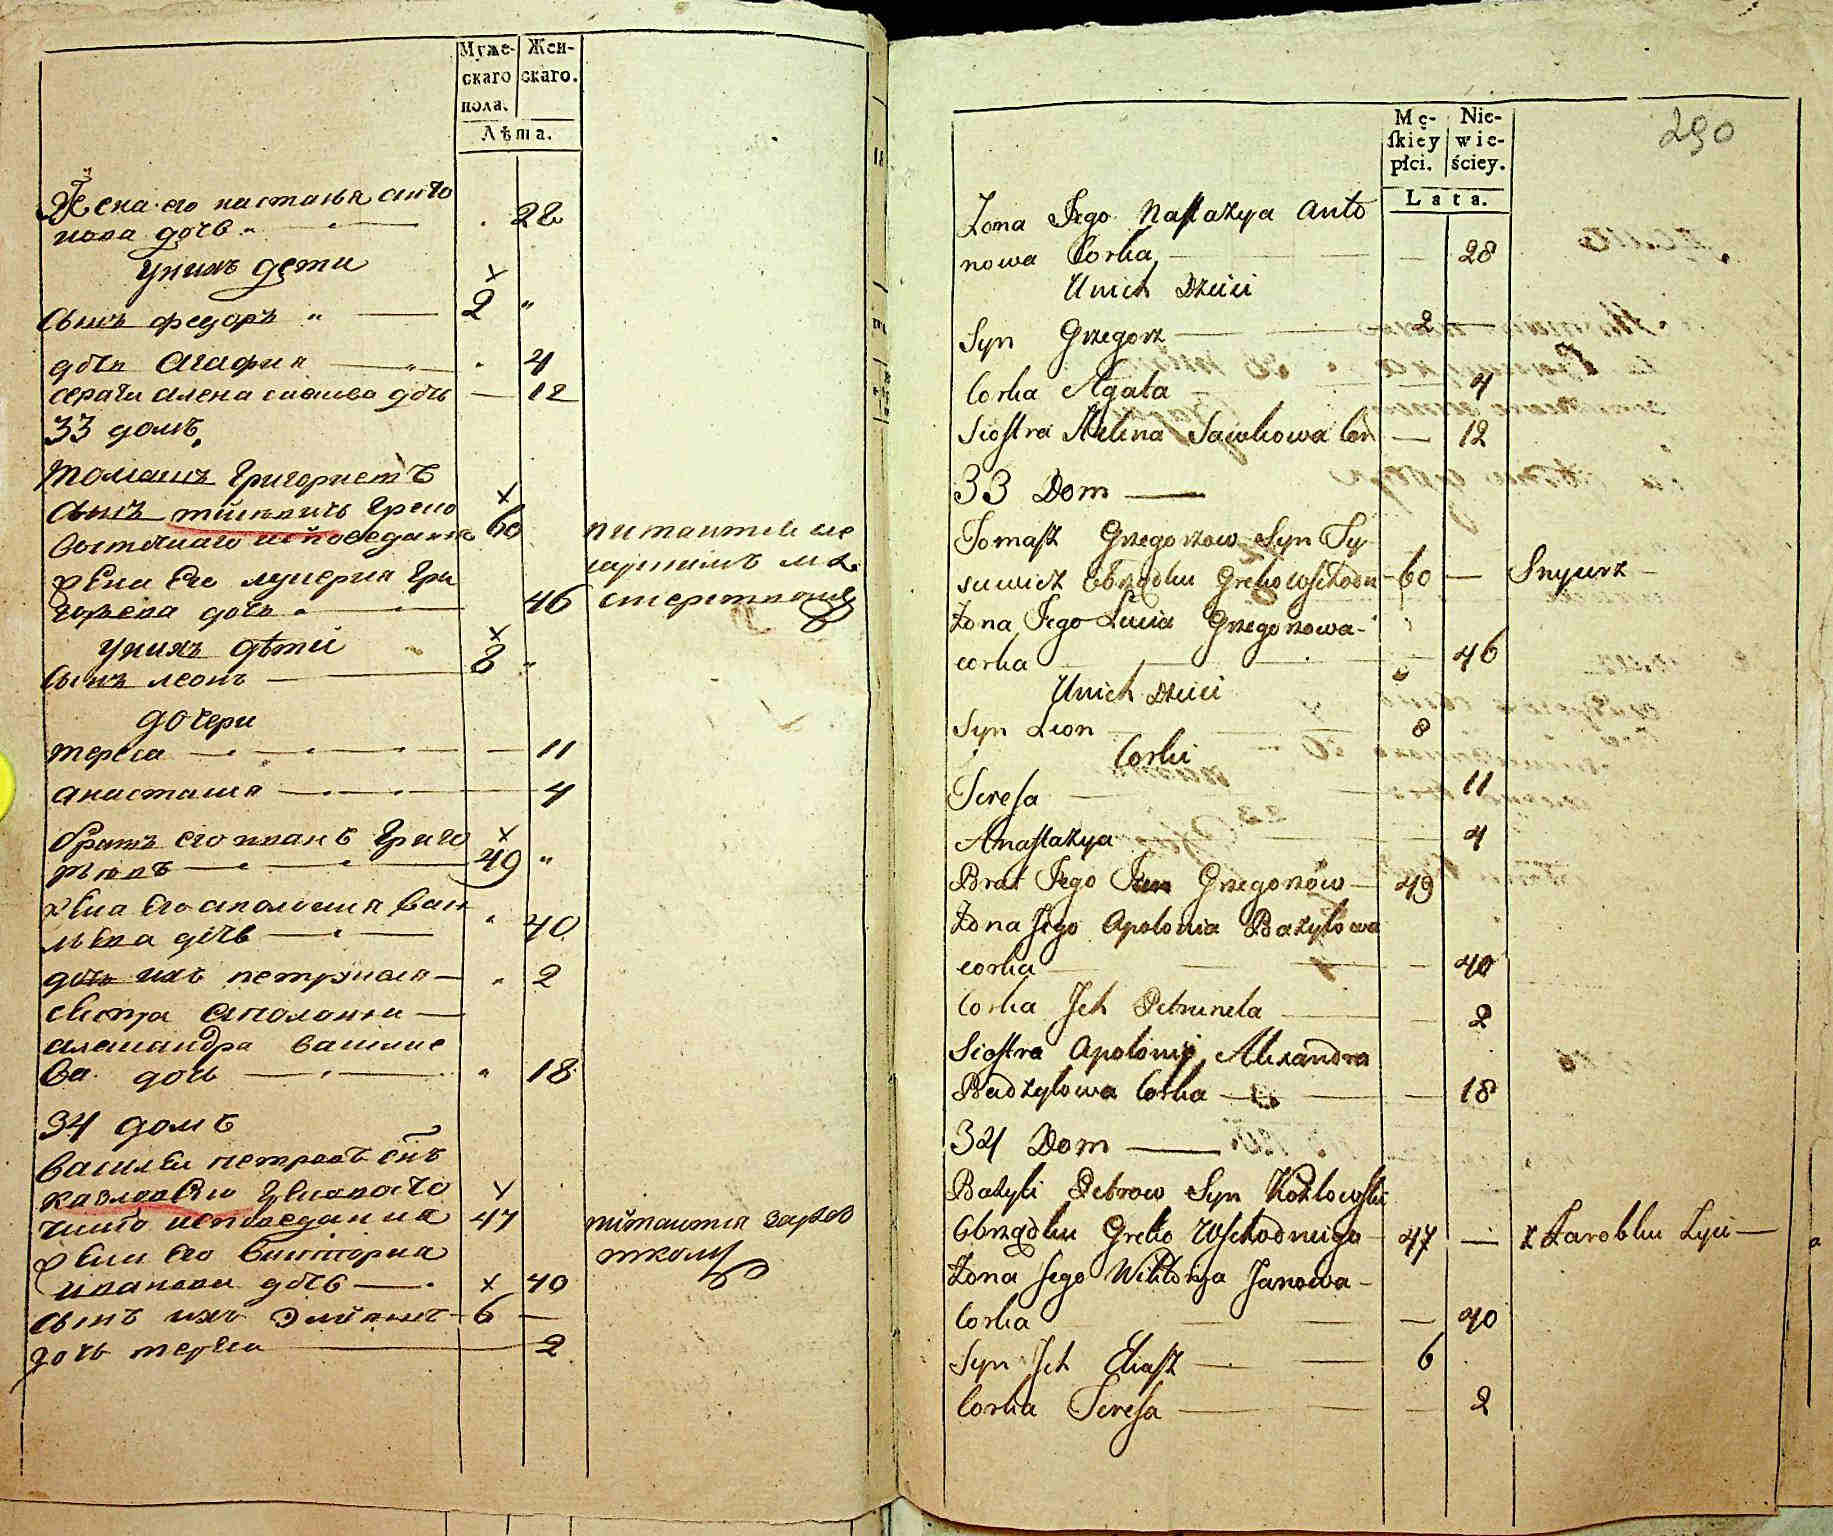 Муже-
скаго
пола.
Жен-
скаго.
Лѣта.
Жена его настазья анто
нова дочь 28
у нихъ дети
сынъ федоръ 2
дочь Агафия 4
алена дочь 12
33 домъ
томашъ Григориевъ
сынъ
60
жена Его Григо
рьева дочь 46
у нихъ дѣти
сынъ леонъ 8
дочери
тереса 11
анастасия 4
братъ его иванъ Григо
рьевъ 49
жена Его аполония Васи
льева дочь 40
дочь ихъ петрунеля 2
сестра Аполонии
александра василие
ва дочь 18
34 домъ
Василеи петровъ снъ
казловски
исповедания 47
жена Его Викторыя
иванова дочь 40
сынъ ихъ Элияшъ 6
дочь тереса 2
питаитса
Mę-
skiey
płci.
Nie-
wie-
ściey.
Lata.
290
Zona Jego Nastazya Anto
nowa Corka 28
Unich Dzieci
Syn Grzegorz 2
Corka Agata 4
Siostra Helena Cor 12
33 Dom
Tomasz Grzegorzow Syn Ty
suwicz Obrządku Greko Wschodn 60 Snycerz
Zona Jego Lucia Grzegorzowa
corka 46
Unich Dzieci
Syn Leon 8
Corki
Teresa 11
Anastazya 4
Brat Jego Jan Grzegorzów 49
Zona Jego Apolonia Bazylowa
corka 40
Corka Ich Petrunela 2
Siostra Apolonij Alexandra
Badzylowa Corka 18
34 Dom
Bazyli Petrow Syn Kozłowski
Obrządku Greko Wschodniego 47 z Zarobku żyie
Zona Jego Wiktorya Janowa
Corka 40
Syn Ich Eliasz 6
Corka Teresa 2